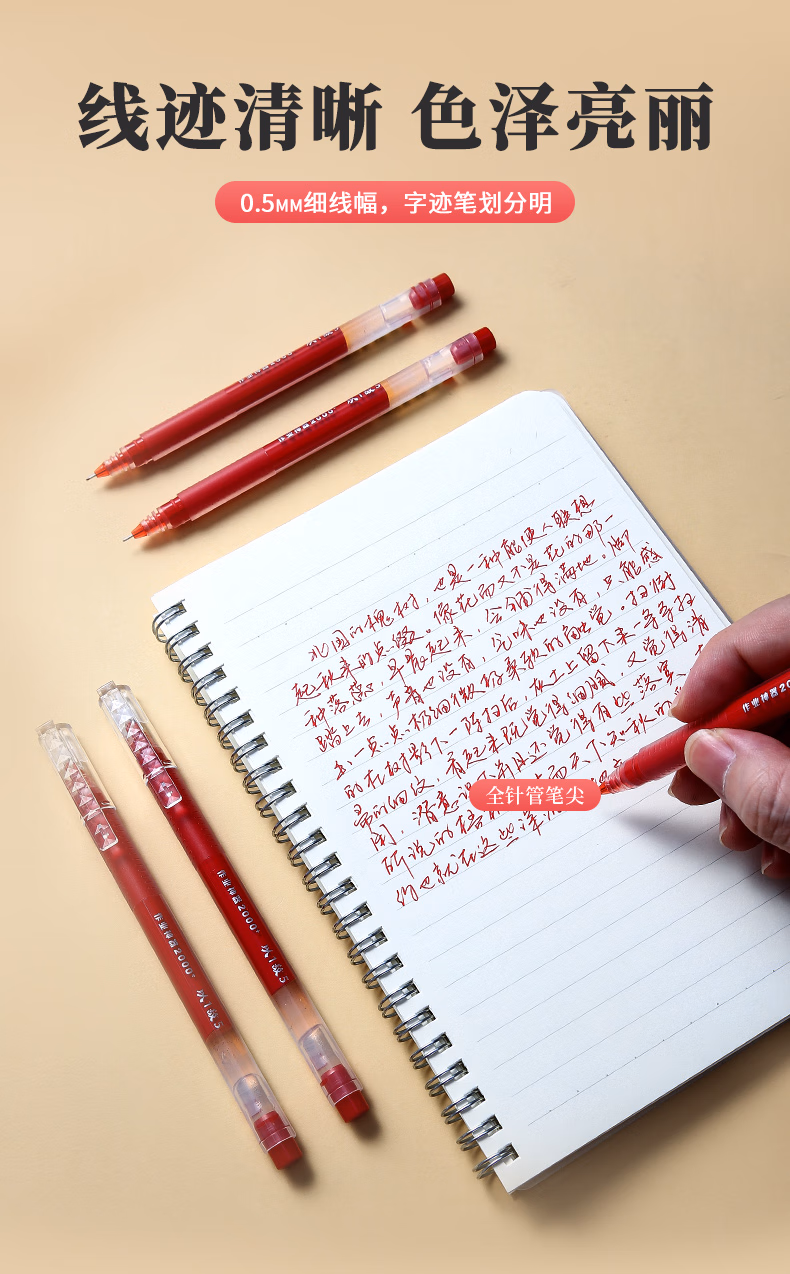 线迹清晰 色泽亮丽
0.5MM细线幅，字迹笔划分明
作业神器2000+
作业神器2000+
北国的槐树，也是一种能使人联想
起秋来的点缀。像花而又不是花的那一
种落蕊，早晨起来，会铺得满地。脚
踏上去，声音也没有，气味也没有，只能感
出一点点极细微极柔软的触觉。扫街
的在树影下一阵扫后，灰土上留下来一条条扫
帚的细纹，看起来既觉得细腻，又觉得清
闲，潜意识下并且还觉得有些落寞，
所说的梧 而天下知秋的
约也就在这些深
作业神器20
全针管笔尖
作业神器2000+
作业神器2000+